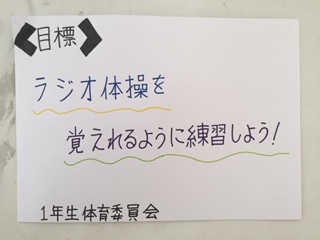 目標
ラジオ体操を
覚えれるように練習しよう!
1年生体育委員会